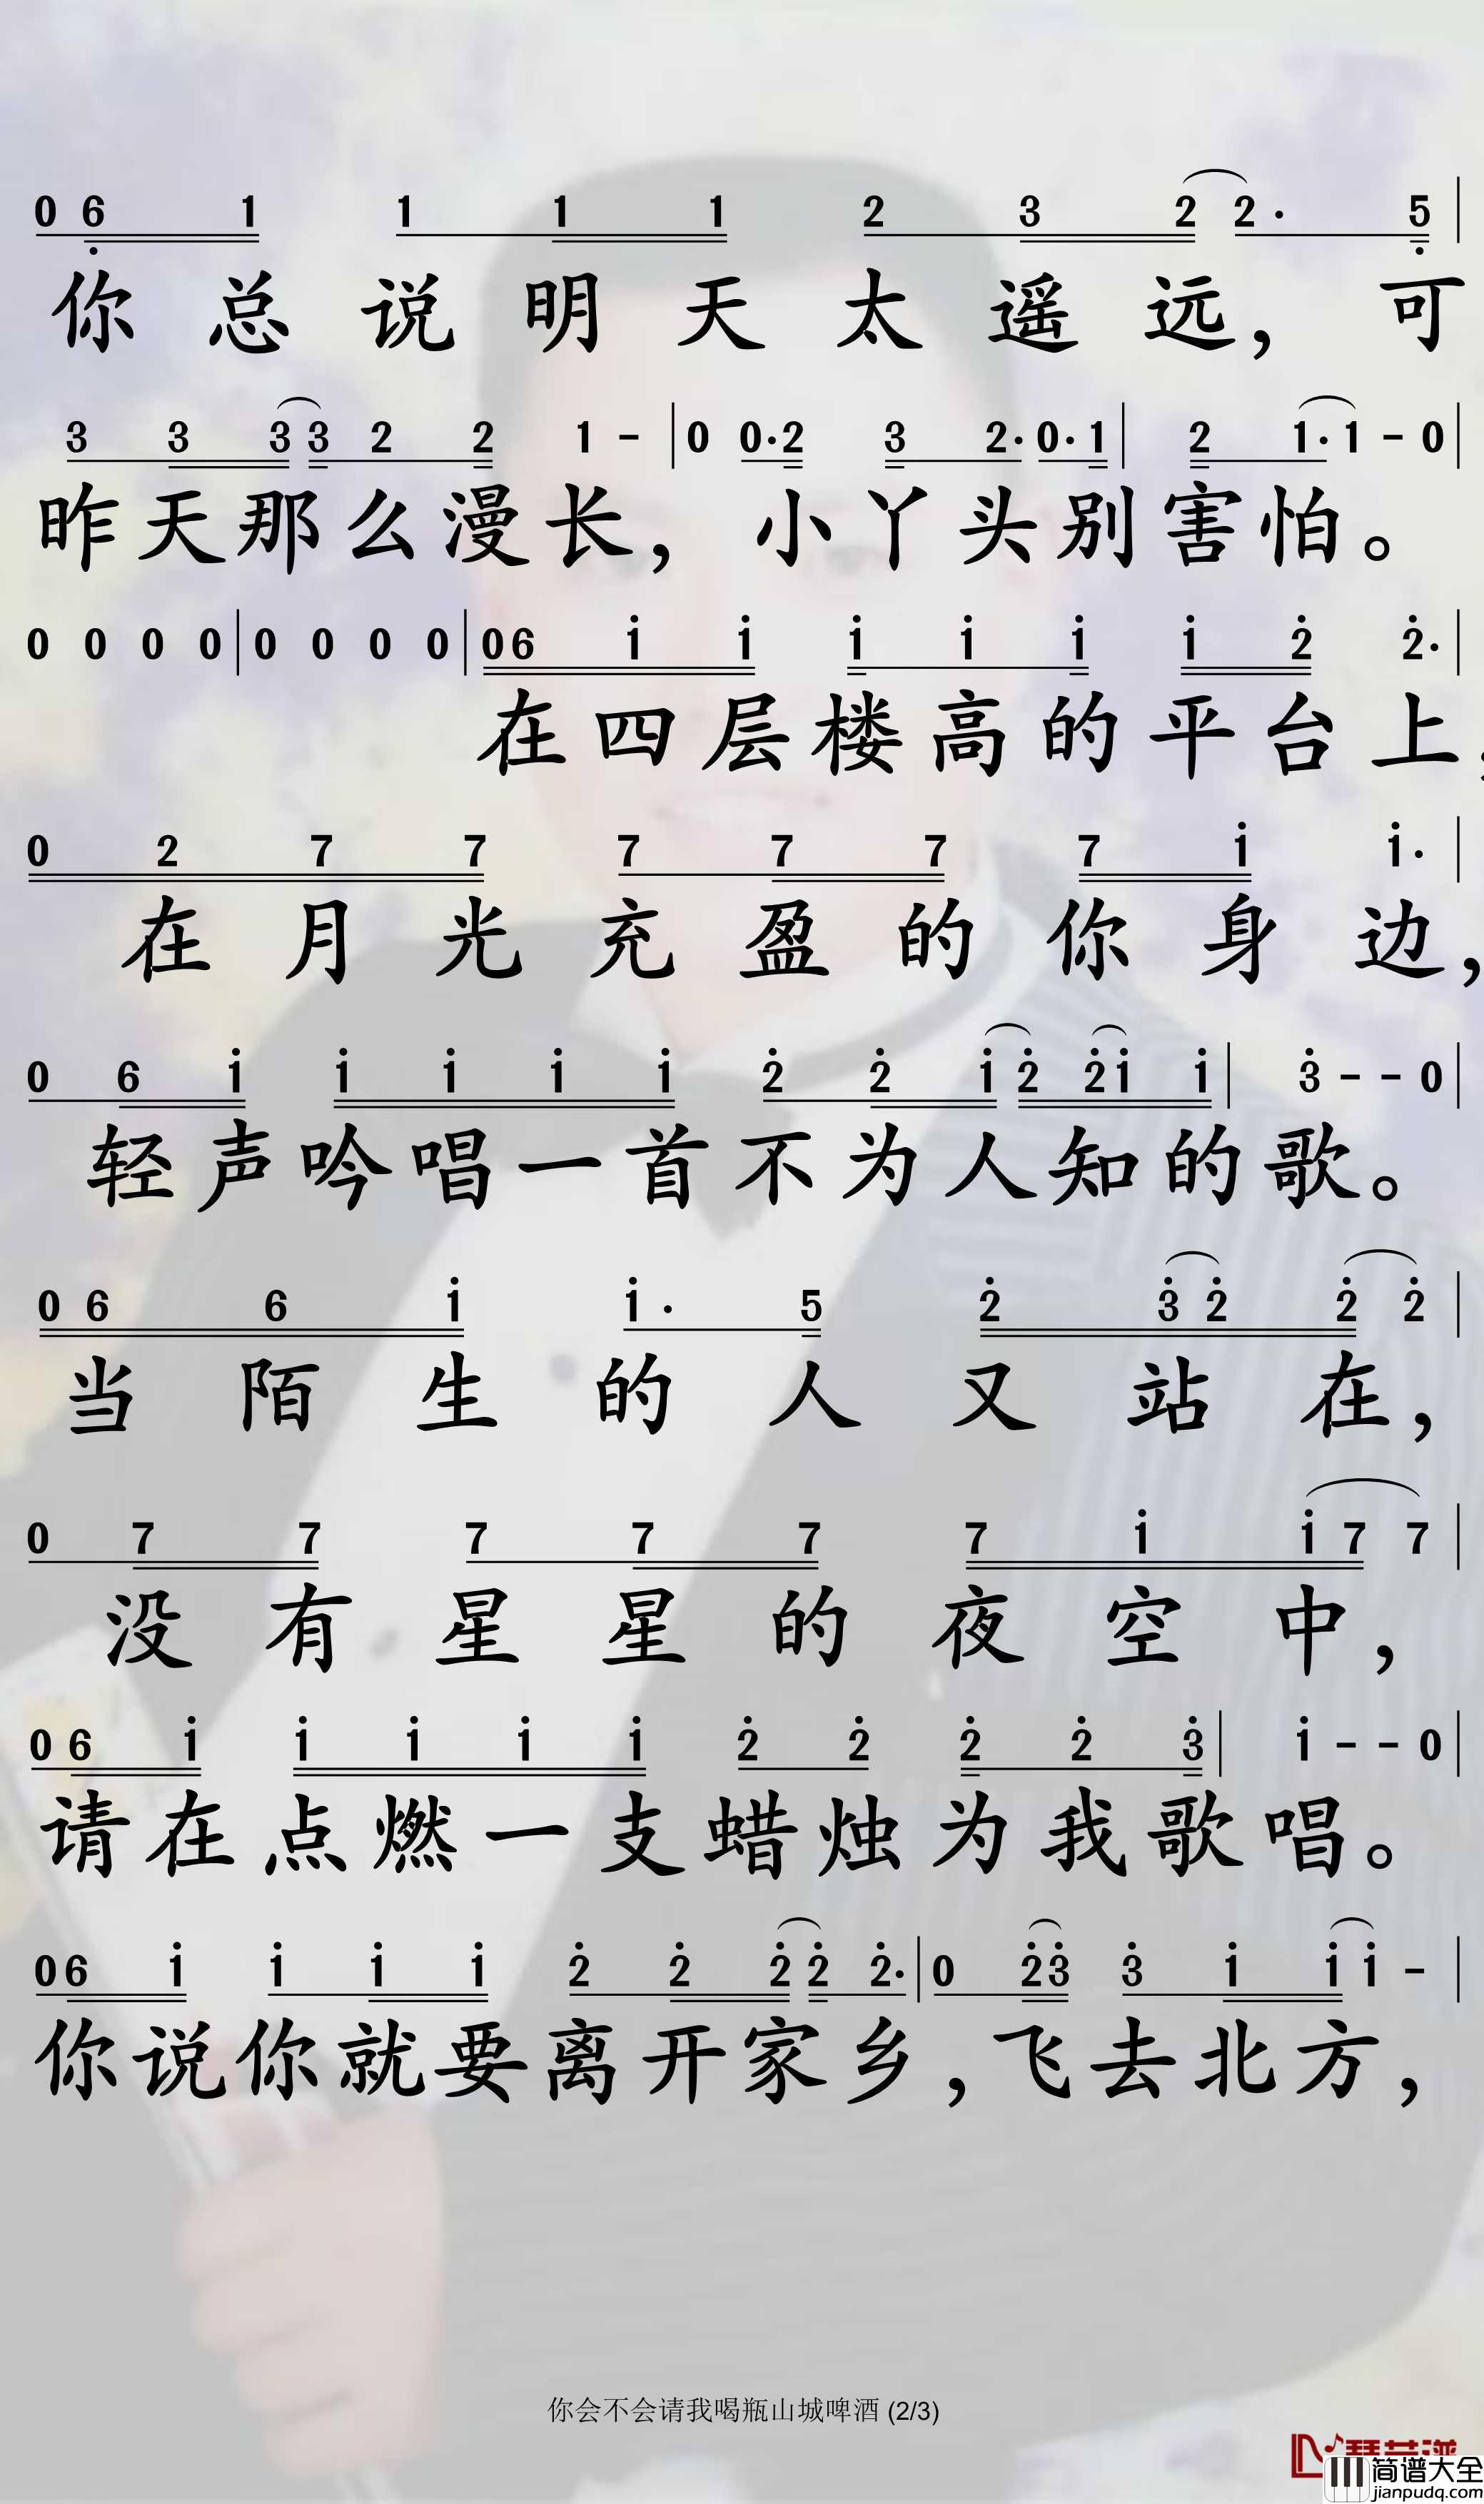 0 6 1 1 1 1 2 3 2 2· 5 |
你总说明天太遥远，可
3 3 3 3 2 2 1 - | 0 0·2 3 2·0·1 | 2 1·1 - 0 |
昨天那么漫长，小丫头别害怕。
0 0 0 0 | 0 0 0 0 | 0 6 1 1 1 1 1 1 2 2· |
在四层楼高的平台上，
0 2 7 7 7 7 7 7 1 1· |
在月光充盈的你身边，
0 6 1 1 1 1 1 2 2 1 2 2 1 1 | 3 - - 0 |
轻声吟唱一首不为人知的歌。
0 6 6 1 1· 5 2 3 2 2 2 |
当陌生的人又站在，
0 7 7 7 7 7 7 1 1 7 7 |
没有星星的夜空中，
0 6 1 1 1 1 1 2 2 2 2 3 | 1 - - 0 |
请在点燃一支蜡烛为我歌唱。
0 6 1 1 1 1 2 2 2 2 2· | 0 2 3 3 1 1 1 - |
你说你就要离开家乡，飞去北方，
你会不会请我喝瓶山城啤酒 (2/3)
简谱大全
jianpudq.com